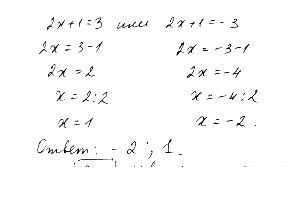 2x+1=3 или 2x+1=-3
2x=3-1 2x=-3-1
2x=2 2x=-4
x=2:2 x=-4:2
x=1 x=-2.
Ответ: -2; 1.